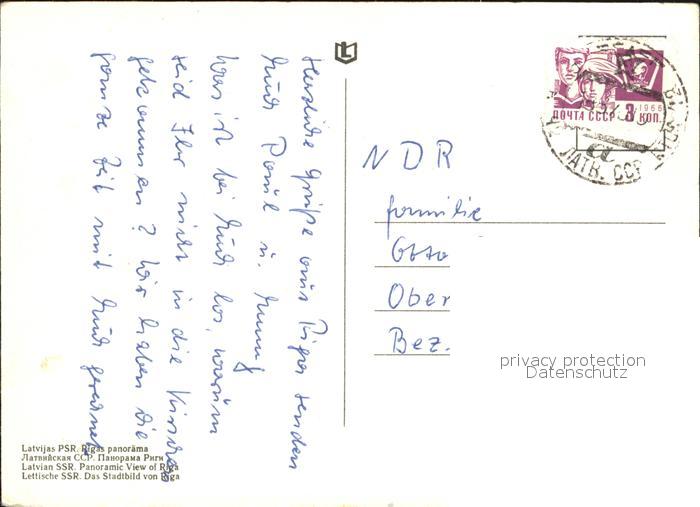 Herzliche Grüße aus Riga senden
Euch Paul u. Emmy
Was ist bei Euch los, warum
seid Ihr nicht in die Kirche
gekommen? Wir haben die
ganze Zeit mit Euch gerechnet
ПОЧТА СССР 3 КОП.
1966
ЛАТВ. ССР
а
NDR
Familie
Otto
Ober
Bez.
privacy protection
Datenschutz
Latvijas PSR. Rīgas panorāma
Латвийская ССР. Панорама Риги
Latvian SSR. Panoramic View of Riga
Lettische SSR. Das Stadtbild von Riga